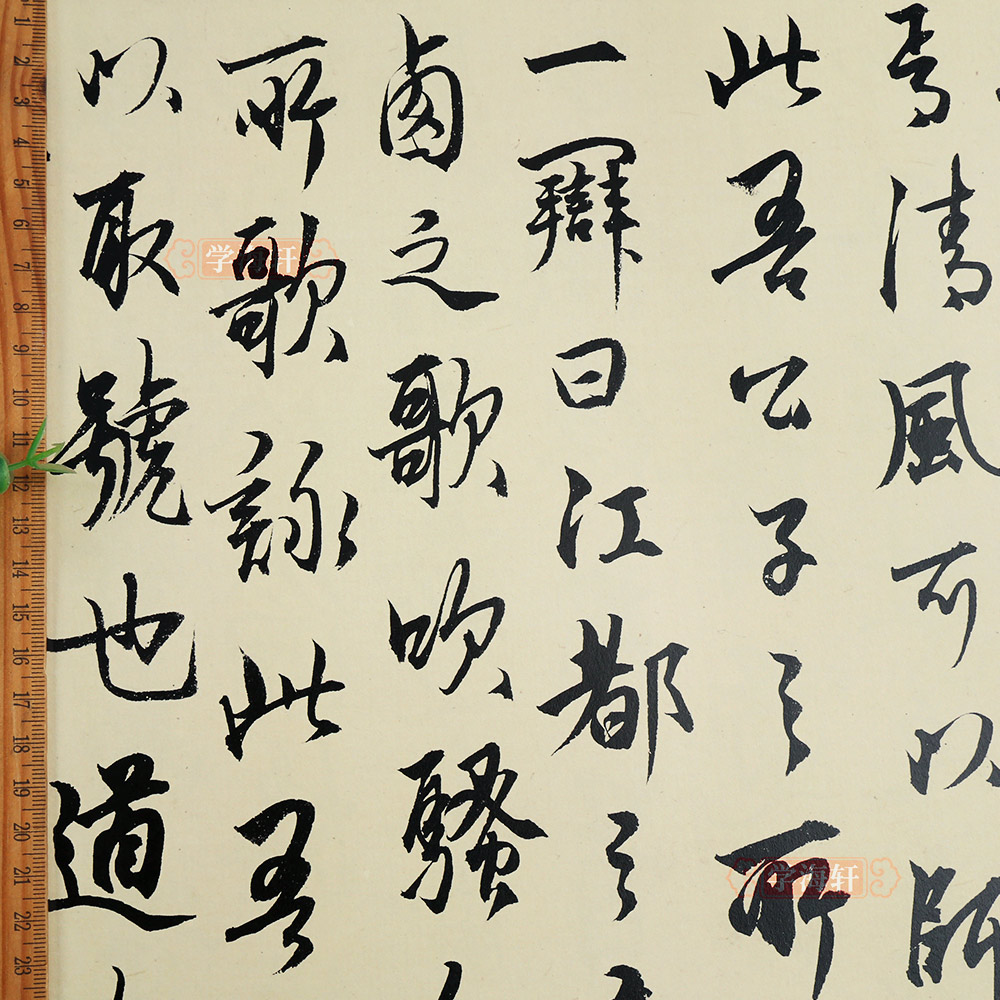 焉清風可以師
此吾公子之所
一辯曰江都之
鹵之歌吹騷
所歌詠此吾
以取號也道
学海轩
学海轩
1 2 3 4 5 6 7 8 9 10 11 12 13 14 15 16 17 18 19 20 21 22 23